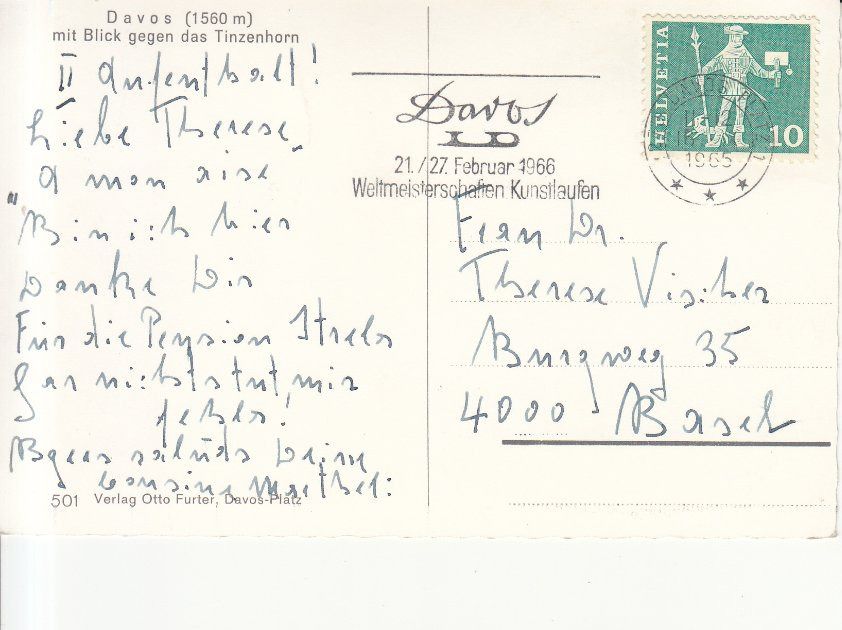 Davos (1560 m)
mit Blick gegen das Tinzenhorn
II Aufenthalt!
Liebe Therese
A mon aise
Bin ich hier
Danke Dir
Für die Pension Strela
Gar nichts tut mir
fehlen!
Bgeras salüds Deine
Cousine
501 Verlag Otto Furter, Davos-Platz
Davos
21./27. Februar 1966
Weltmeisterschaften Kunstlaufen
HELVETIA
10
1965
Frau Dr.
Therese Vischer
Burgweg 35
4000 Basel